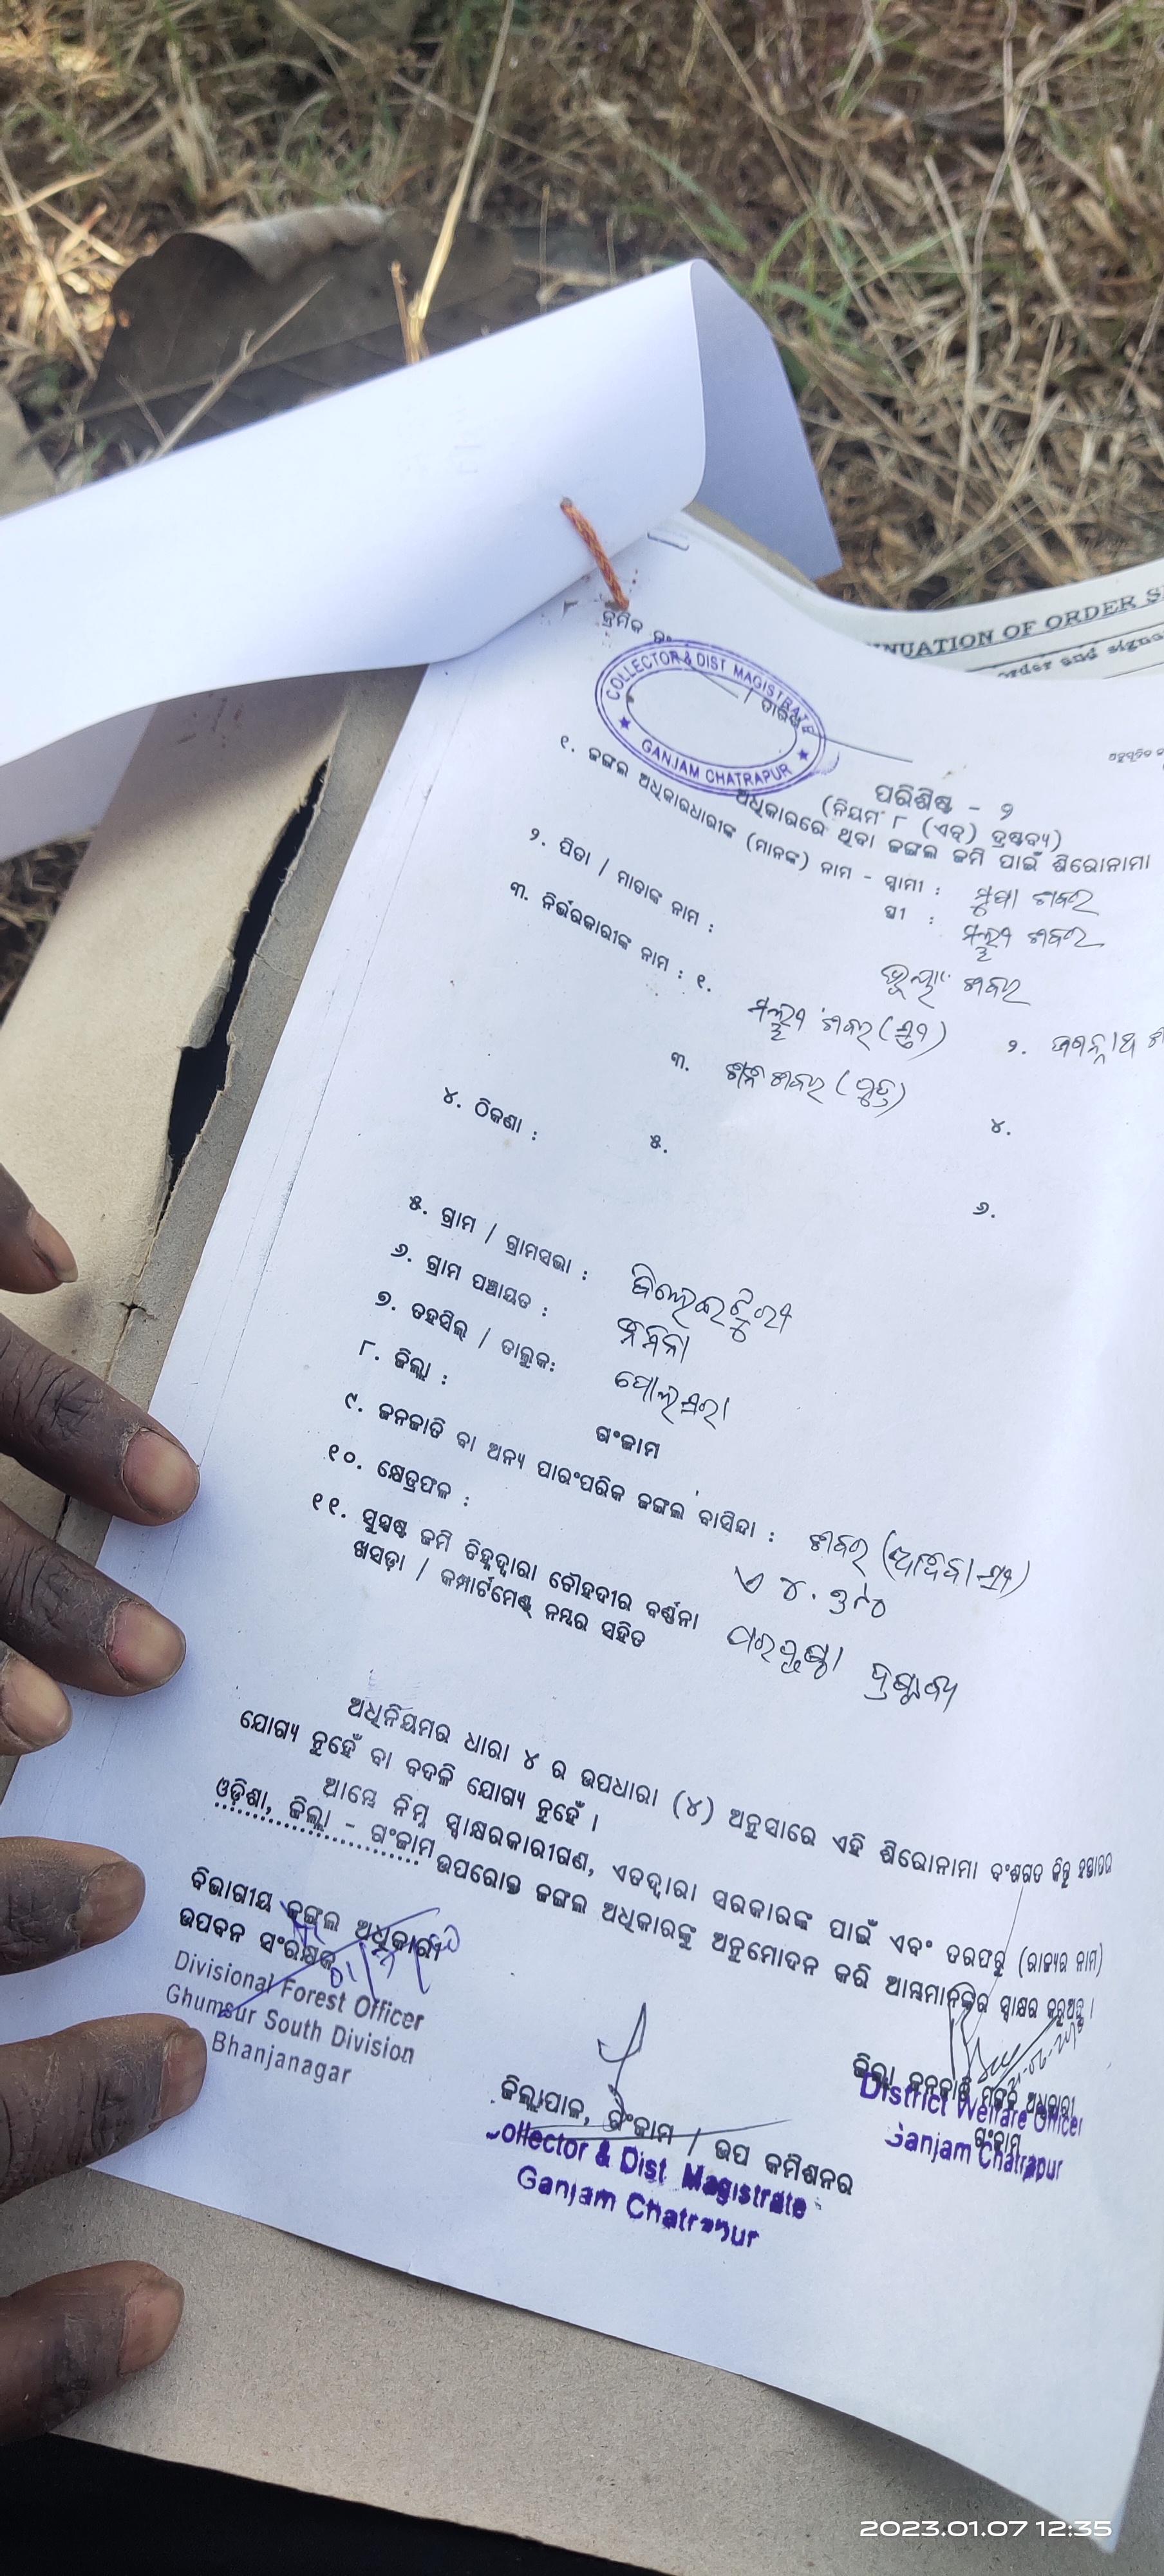 NUATION OF ORDER S
order and signa
କ୍ରମିକ ନଂ
COLLECTOR & DIST MAGISTRATE
GANJAM CHATRAPUR
/ ତାରିଖ
ପରିଶିଷ୍ଟ - ୨
(ନିୟମ ୮ (ଏଚ୍) ଦ୍ରଷ୍ଟବ୍ୟ)
ଅଧିକାରରେ ଥିବା ଜଙ୍ଗଲ ଜମି ପାଇଁ ଶିରୋନାମା
୧. ଜଙ୍ଗଲ ଅଧିକାରଧାରୀଙ୍କ (ମାନଙ୍କ) ନାମ - ସ୍ୱାମୀ : ଶବର
ସ୍ତ୍ରୀ : ଶବର
୨. ପିତା / ମାତାଙ୍କ ନାମ : ଶବର
୩. ନିର୍ଭରକାରୀଙ୍କ ନାମ : ୧. ଶବର (ସ୍ତ୍ରୀ) ୨. ଜଗନ୍ନାଥ
୩. ଶବର (ପୁତ୍ର) ୪.
୫. ୬.
୪. ଠିକଣା :
୫. ଗ୍ରାମ / ଗ୍ରାମସଭା :
୬. ଗ୍ରାମ ପଞ୍ଚାୟତ :
୭. ତହସିଲ୍ / ତାଲୁକ: ପୋଲସରା
୮. ଜିଲ୍ଲା : ଗଂଜାମ
୯. ଜନଜାତି ବା ଅନ୍ୟ ପାରଂପରିକ ଜଙ୍ଗଲ ବାସିନ୍ଦା : ଶବର (ଆଦିବାସୀ)
୧୦. କ୍ଷେତ୍ରଫଳ :
୧୧. ସୁସ୍ପଷ୍ଟ ଜମି ଚିହ୍ନଦ୍ୱାରା ଚୌହଦୀର ବର୍ଣ୍ଣନା
ଖସଡ଼ା / କମ୍ପାର୍ଟମେଣ୍ଟ୍ ନମ୍ବର ସହିତ ପରପୃଷ୍ଠା ଦ୍ରଷ୍ଟବ୍ୟ
ଅଧିନିୟମର ଧାରା ୪ ର ଉପଧାରା (୪) ଅନୁସାରେ ଏହି ଶିରୋନାମା ବଂଶଗତ କିନ୍ତୁ ହସ୍ତାନ୍ତର
ଯୋଗ୍ୟ ନୁହେଁ ବା ବଦଳି ଯୋଗ୍ୟ ନୁହେଁ ।
ଆମ୍ଭେ ନିମ୍ନ ସ୍ୱାକ୍ଷରକାରୀଗଣ, ଏତଦ୍ୱାରା ସରକାରଙ୍କ ପାଇଁ ଏବଂ ତରଫରୁ (ରାଜ୍ୟର ନାମ)
ଓଡ଼ିଶା, ଜିଲ୍ଲା - ଗଂଜାମ ଉପରୋକ୍ତ ଜଙ୍ଗଲ ଅଧିକାରଙ୍କୁ ଅନୁମୋଦନ କରି ଆମ୍ଭମାନଙ୍କର ସ୍ୱାକ୍ଷର କରୁଅଛୁ ।
ବିଭାଗୀୟ ଜଙ୍ଗଲ ଅଧିକାରୀ
ଉପବନ ସଂରକ୍ଷକ
Divisional Forest Officer
Ghumsur South Division
Bhanjanagar
ଜିଲ୍ଲାପାଳ, ଗଂଜାମ / ଉପ କମିଶନର
Collector & Dist Magistrate
Ganjam Chatrapur
ଜିଲ୍ଲା ଜନଜାତି ମଙ୍ଗଳ ଅଧିକାରୀ
ଗଂଜାମ
District Welfare Officer
Ganjam Chatrapur
2023.01.07 12:35